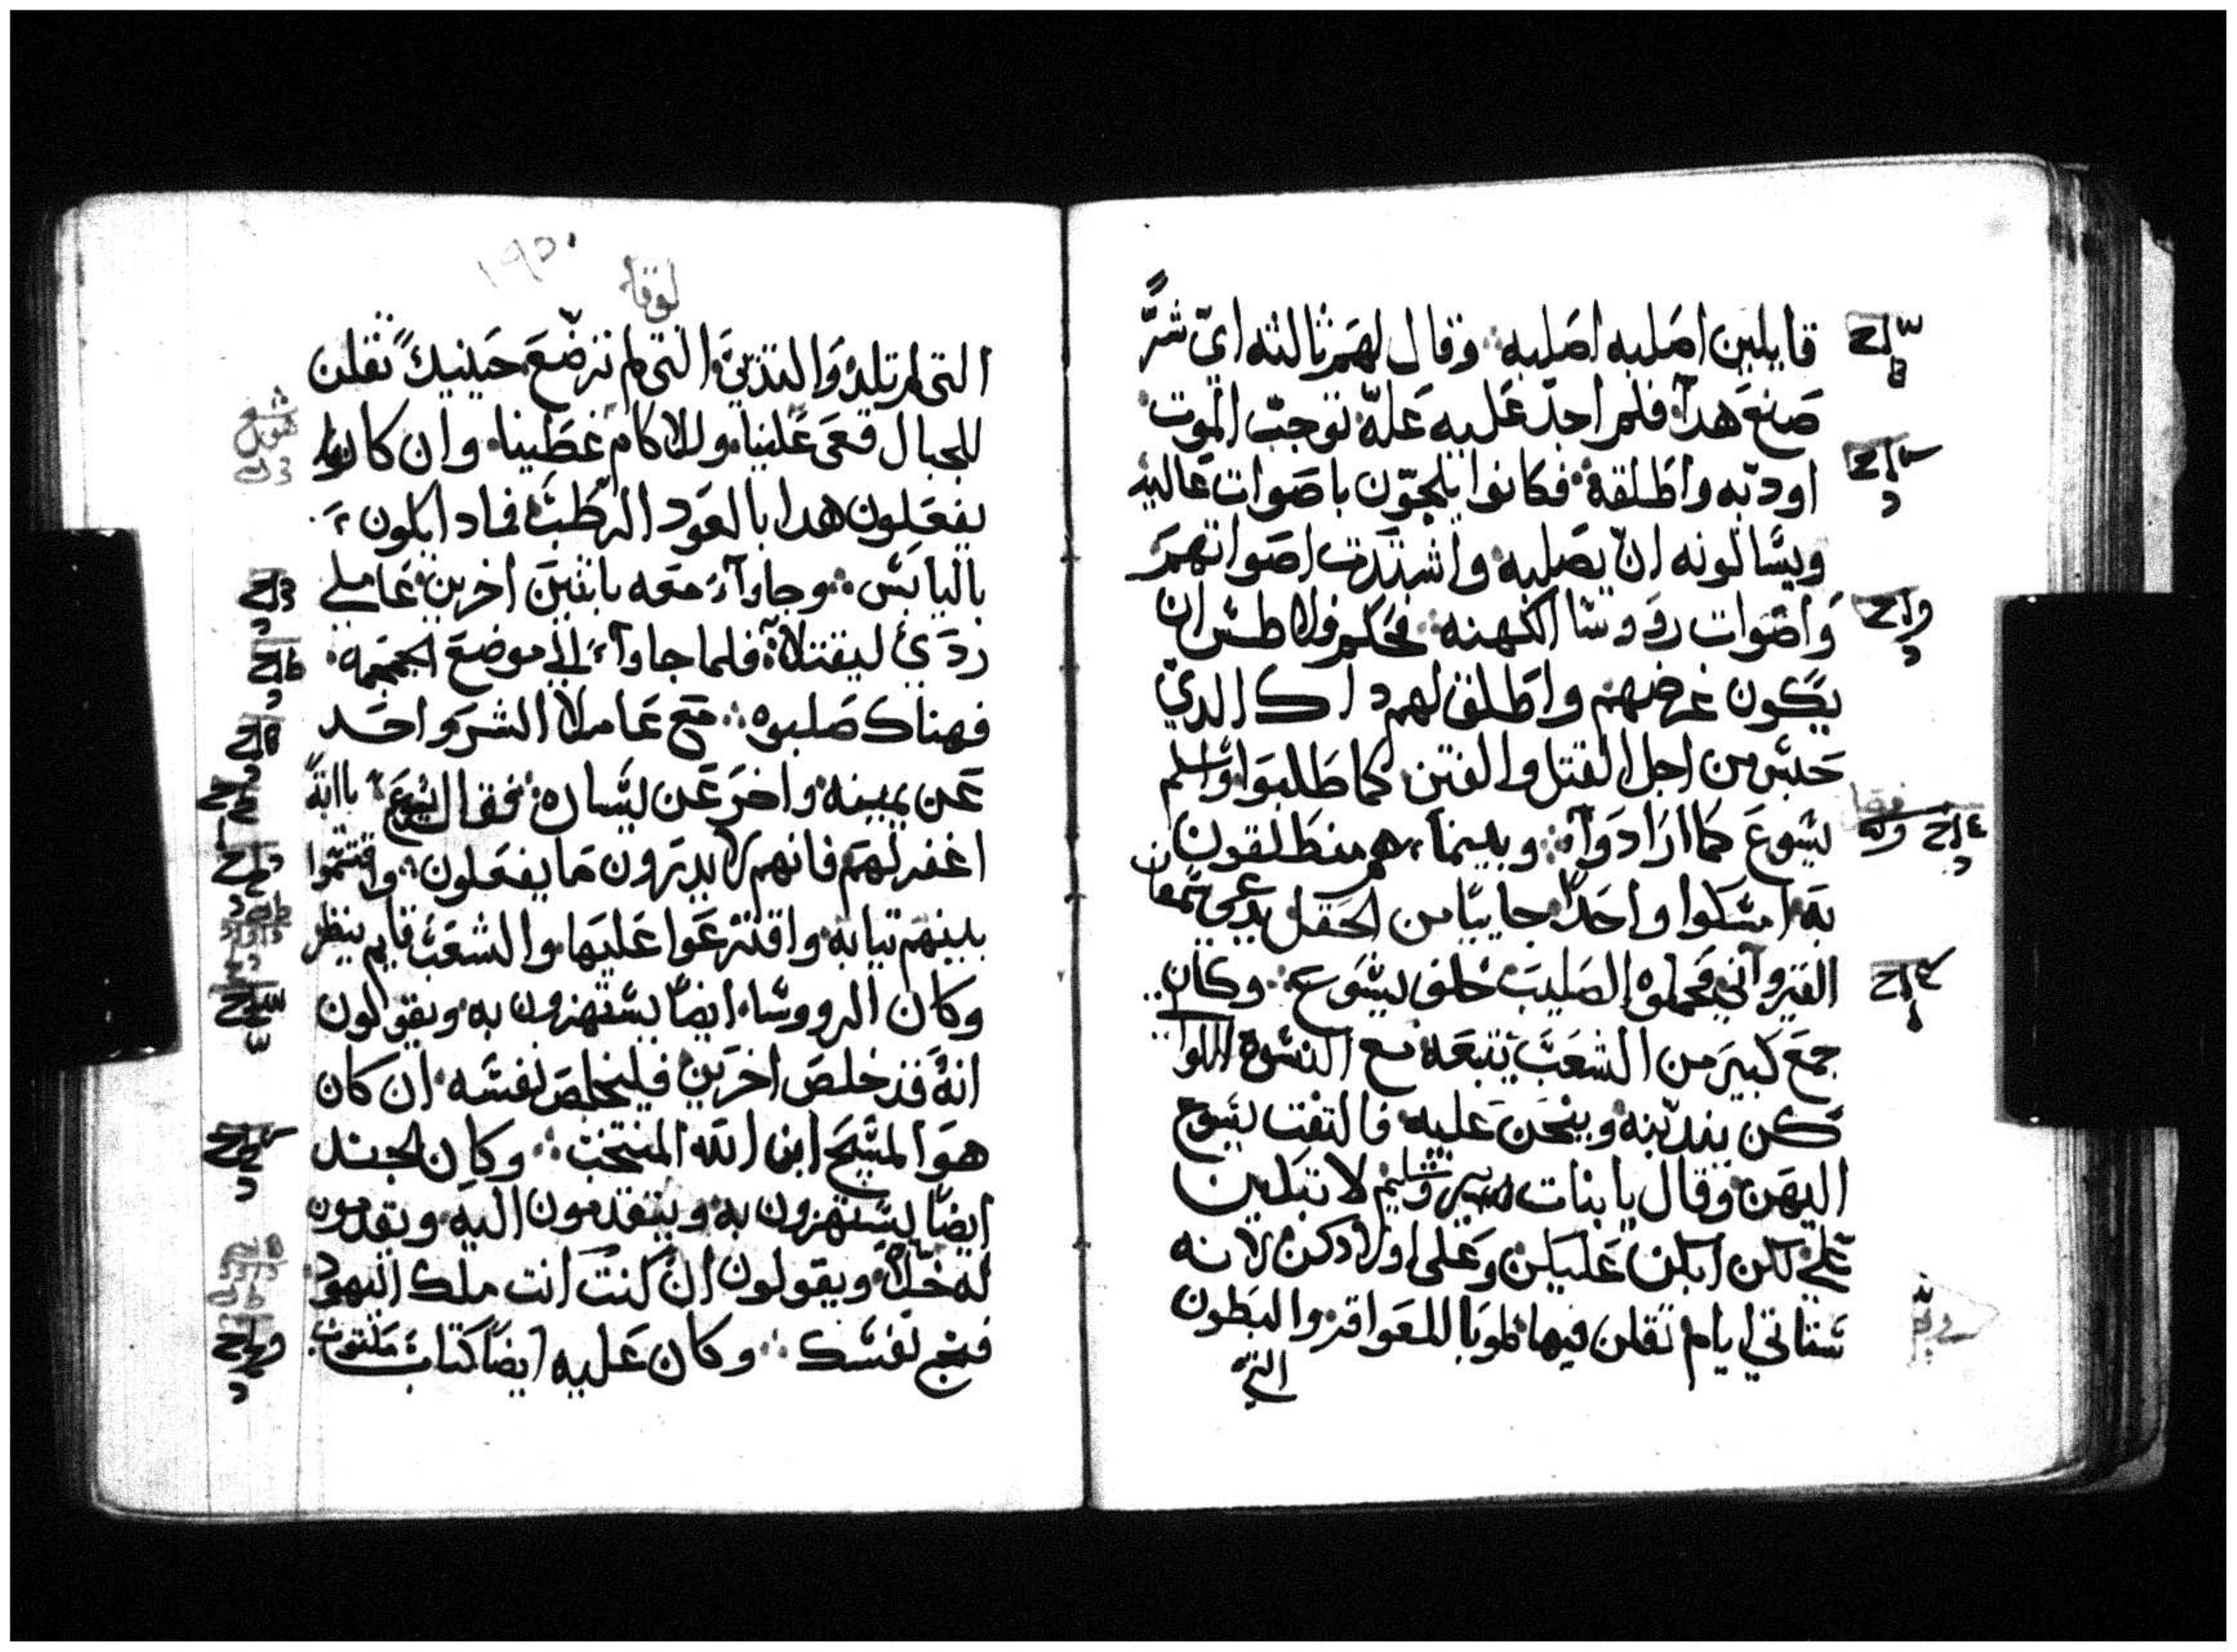 قايلين اصلبه اصلبه وقال لهم ثالثه اي شرًّ
صنع هدا فلم اجد عليه علّه توجب الموت
اودبه واطلقه فكانوا يلجّون باصوات عاليه
ويسالونه ان يصلبه واشتدت اصواتهم
واصوات رووسا الكهنه فحكم فلاطس ان
يكون غرضهم واطلق لهم داك الدي
حبس من اجل القتل والفتن كما طلبوا واسلم
يسوع كما ارادوا وبينما هم منطلقون
به امسكوا واحدًا جاييًا من الحقل يدعي سمعان
القيرواني فحملوه الصليب خلف يسوع وكان
جمع كبير من الشعب يتبعه مع النسوة اللوا
كن يندبنه وينحن عليه فالتفت يسوع
اليهن وقال يا بنات يروشليم لا تبكين
علي لكن ابكن عليكن وعلى اولادكن لانه
ستاتي ايام تقلن فيها طوبا للعواقر والبطون
التي
لوقا
١٩٥
التي لم تلد والتدي التي لم ترضع حينيد تقلن
للجبال قعي علينا وللاكام غطينا وان كانوا
يفعلون هدا بالعود الرطب فماد ايكون
باليابس وجاوا معه باتنين اخرين عاملي
ردي ليقتلا فلما جاوا الي موضع الجمجمه
فهناك صلبوه مع عاملا الشر واحد
عن يمينه واخر عن يساره فقال يسوع يا ابة
اغفر لهم فانهم لا يدرون ما يفعلون واقتسموا
بينهم تيابه واقترعوا عليها والشعب قايم ينظر
وكان الرووسا ايضا يستهزون به ويقولون
انه قد خلص اخرين فليخلص نفسه ان كان
هو المسيح ابن الله المنتخب وكان الجند
ايضا يستهزون به ويتقدمون اليه ويقدمون
له خلًا ويقولون ان كنت انت ملك اليهود
فنج نفسك وكان عليه ايضا كتاب مكتوب